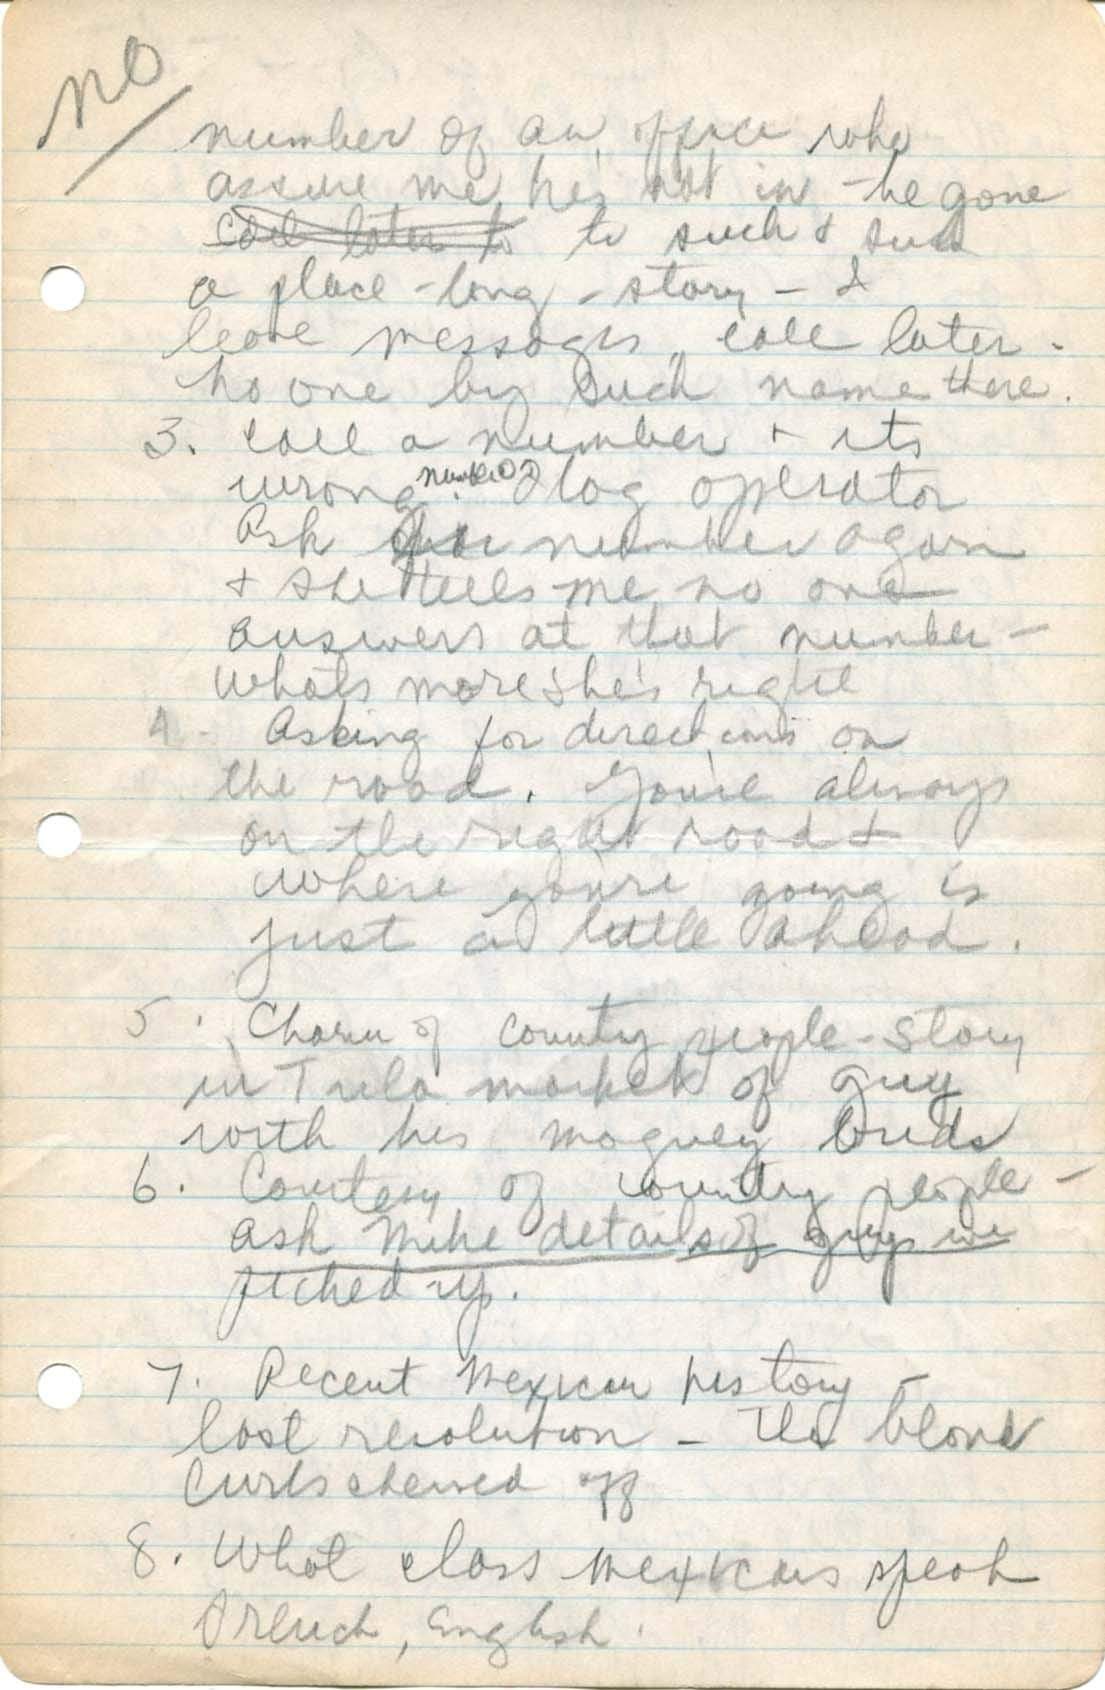 no
number of an office who
assure me he's not in - he gone
call later to to such & such
a place - long - story - I
leave messages, call later -
no one by such name there.
3. Call a number & its
wrong number. I log operator
Ask for number again
& she tells me no one
answers at that number -
whats more she's right
4. Asking for directions on
the road. You're always
on the right road &
where you're going is
just a little ahead.
5. Charm of country people - story
in Tula market of guy
with his maguey buds
6. Courtesy of country people -
ask Mike details of guy we
picked up.
7. Recent Mexican history -
last revolution - the blond
curls sheared off
8. What class Mexicans speak
French, English.